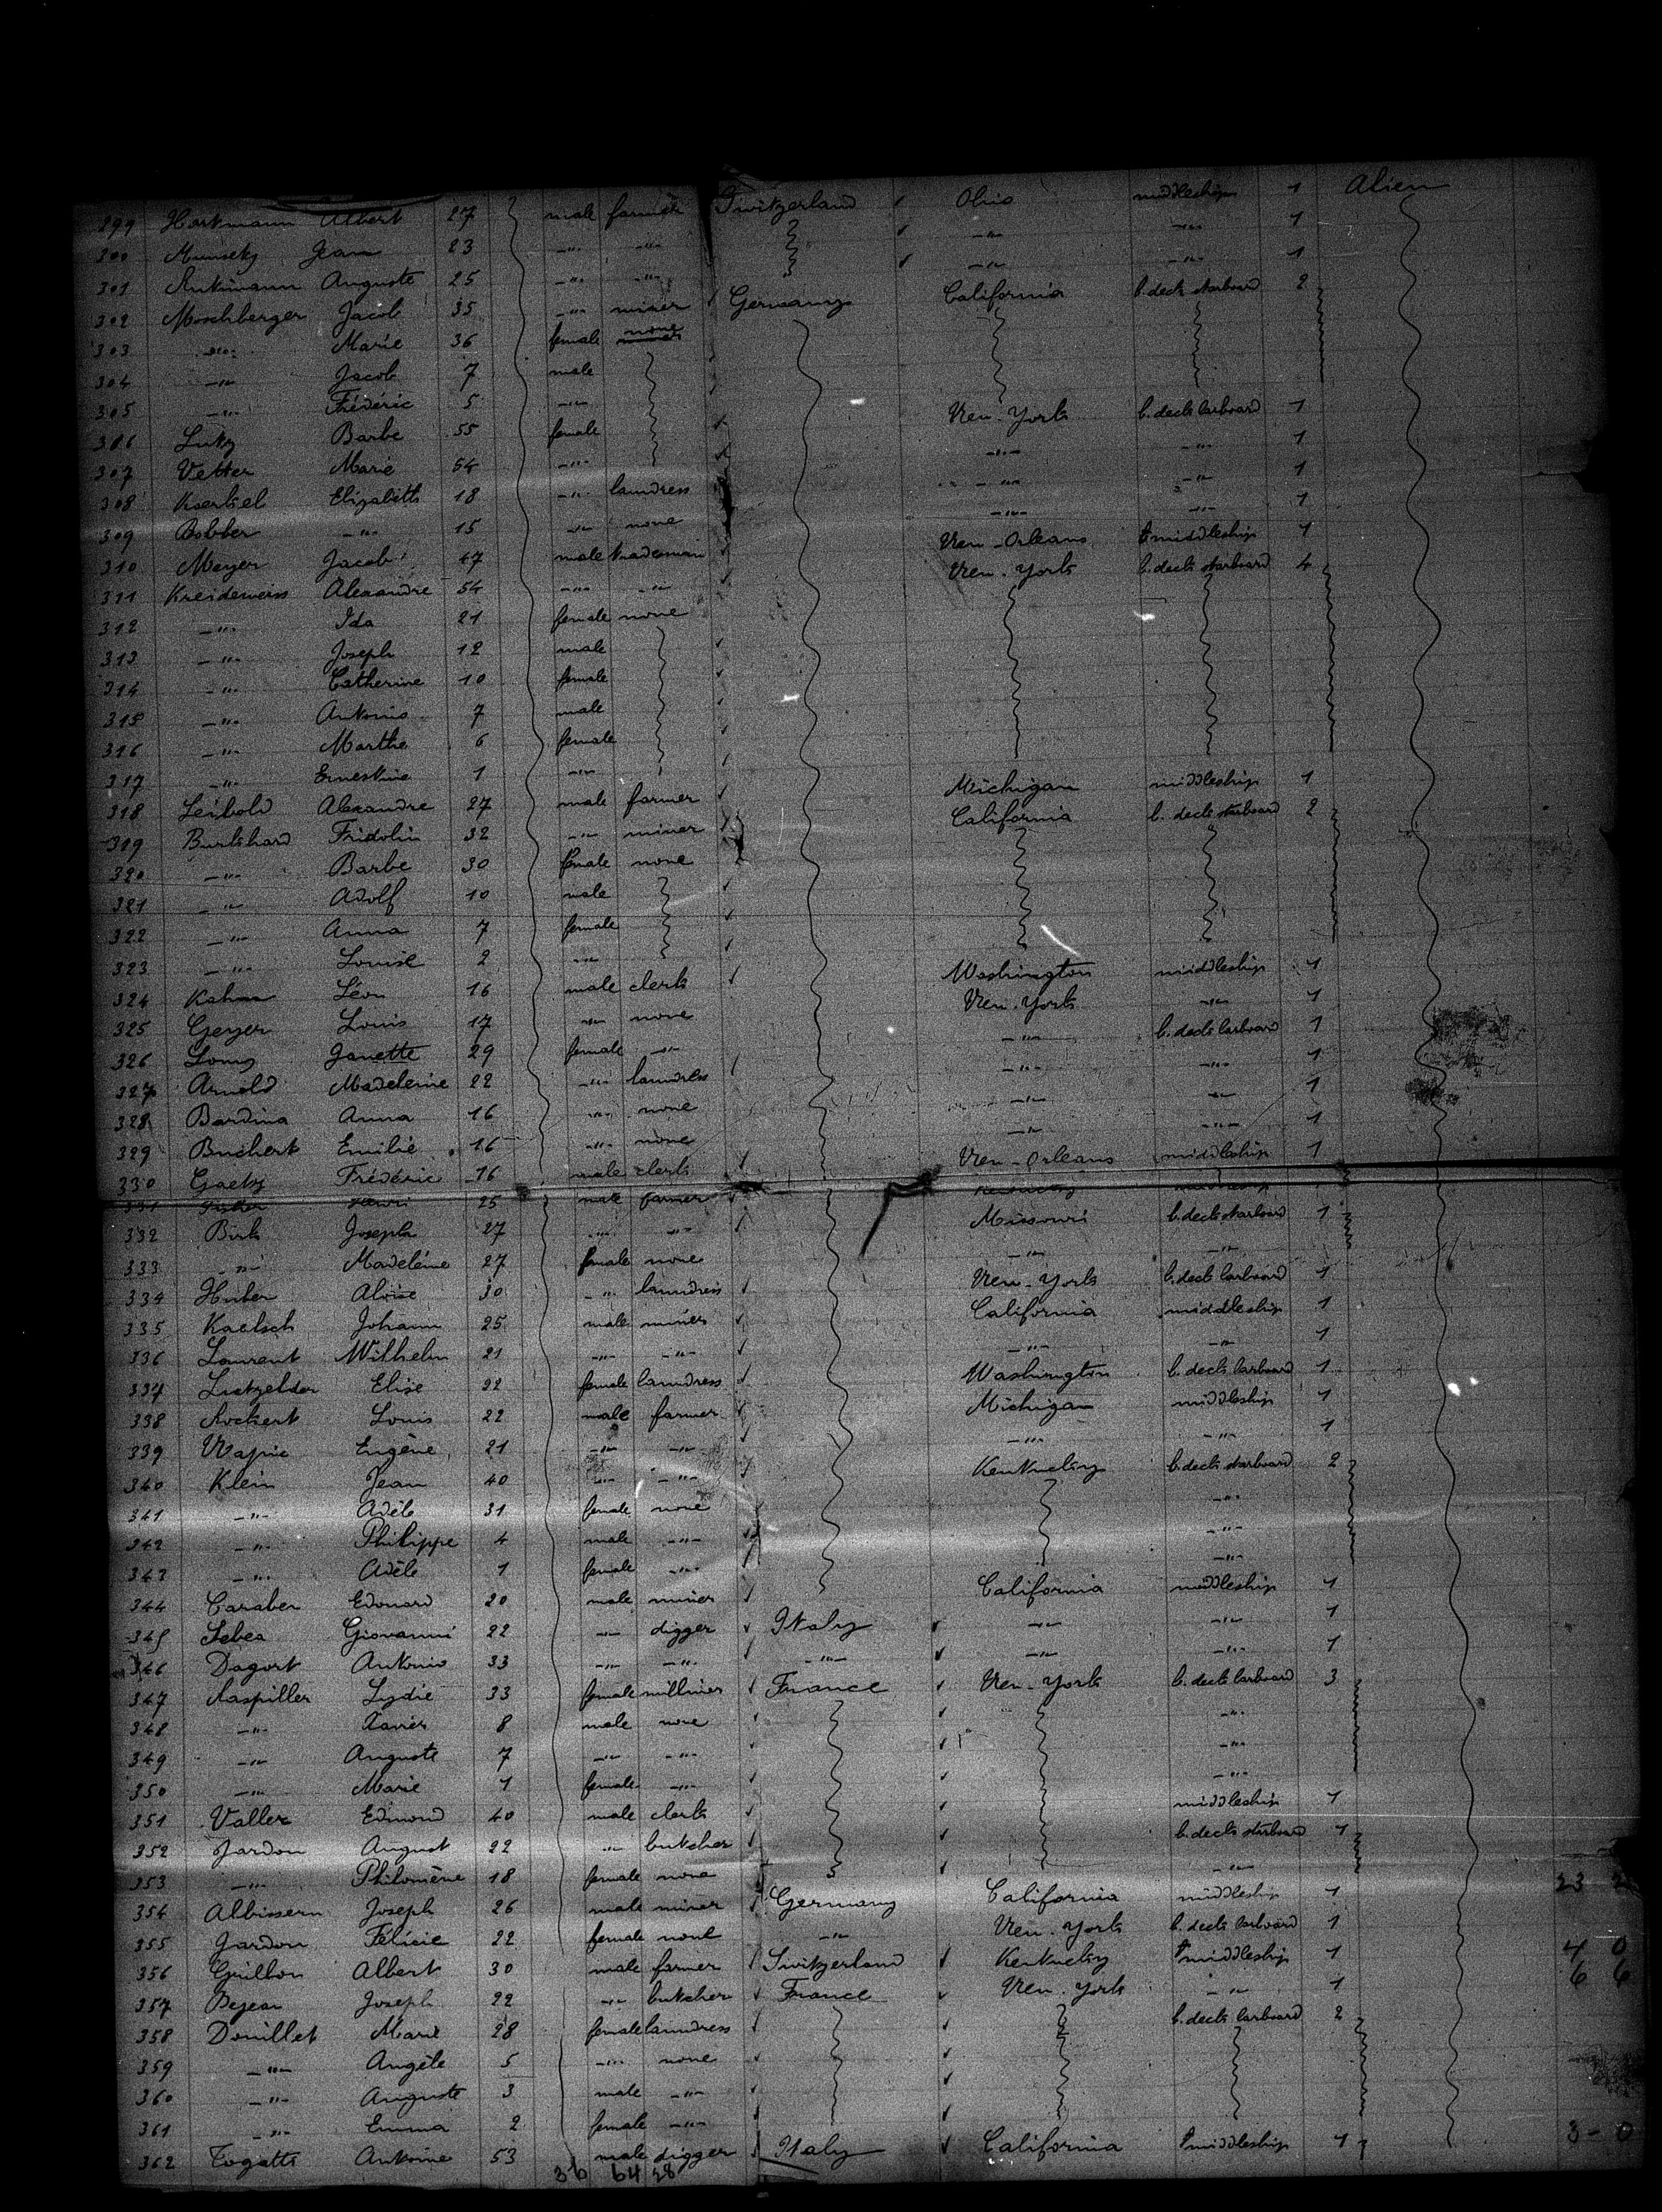 299 Hartmann Albert 27 male farmer Switzerland Ohio middleship 1 Alien
300 Munseky Jean 23 -"- -"- -"- -"- 1
301 Auguste 25 -"- -"- -"- -"- 1
302 Moschberger Jacob 35 -"- miner Germany California b. deck starboard 2
303 -"- Marie 36 female none
304 -"- Jacob 7 male
305 -"- Frédéric 5 -"-
306 Lutz Barbe 55 female New-York b. deck larboard 1
307 Vetter Marie 54 -"- -"- -"- 1
308 Elizabeth 18 -"- laundress -"- -"- 1
309 Bobber -"- 15 -"- none -"- -"- 1
310 Meyer Jacob 47 male tradesman New-Orleans middleship 1
311 Kreideweiss Alexandre 54 -"- -"- New-York b. deck starboard 4
312 -"- Ida 21 female none
313 -"- Joseph 12 male
314 -"- Catherine 10 female
315 -"- Antonio 7 male
316 -"- Marthe 6 female
317 -"- Ernestine 1 -"-
318 Leibold Alexandre 27 male farmer Michigan middleship 1
319 Burkhard Fridolin 32 -"- miner California b. deck starboard 2
320 -"- Barbe 30 female none
321 -"- Adolf 10 male
322 -"- Anna 7 female
323 -"- Louise 2 -"-
324 Kahn Léon 16 male clerk Washington middleship 1
325 Geyer Louis 17 -"- none New-York -"- 1
326 Janette 29 female -"- -"- b. deck larboard 1
327 Arnold Madeleine 22 -"- laundress -"- -"- 1
328 Bardina Anna 16 -"- none -"- -"- 1
329 Buchert Emilie 16 -"- none -"- -"- 1
330 Gaetz Frédéric 16 male clerk New-Orleans middleship 1
331 Henri 25 male farmer Kentucky middleship
332 Birk Joseph 27 -"- -"- Missouri b. deck starboard 1
333 -"- Madeleine 27 female none -"- -"-
334 Huber Aloise 30 -"- laundress New-York b. deck larboard 1
335 Kaelsch Johann 25 male miner California middleship 1
336 Laurent Wilhelm 21 -"- -"- -"- -"- 1
337 Lutzelder Elise 22 female laundress Washington b. deck larboard 1
338 Rockert Louis 22 male farmer Michigan middleship 1
339 Eugène 21 -"- -"- -"- -"- 1
340 Klein Jean 40 -"- -"- Kentucky b. deck starboard 2
341 -"- Adèle 31 female none -"-
342 -"- Philippe 4 male -"- -"-
343 -"- Adèle 1 female -"- -"-
344 Caraben Edouard 20 male miner California middleship 1
345 Sebea Giovanni 22 -"- digger Italy -"- -"- 1
346 Dagort Antonio 33 -"- -"- -"- -"- -"- 1
347 Raspiller Lydie 33 female milliner France New-York b. deck larboard 3
348 -"- Xavier 8 male none -"-
349 -"- Auguste 7 -"- -"- -"-
350 -"- Marie 1 female -"- -"-
351 Vallez Edmond 40 male clerk middleship 1
352 Jardon August 22 -"- butcher b. deck starboard 1
353 -"- Philomène 18 female none -"- 23
354 Albissern Joseph 26 male miner Germany California middleship 1
355 Jardon Félicie 22 female none -"- New-York b. deck larboard 1
356 Guillon Albert 30 male farmer Switzerland Kentucky middleship 1 4 0
357 Bejean Joseph 22 -"- butcher France New-York -"- 1 6 6
358 Douillet Marie 28 female laundress b. deck larboard 2
359 -"- Angèle 5 -"- none
360 -"- Auguste 3 male -"-
361 -"- Emma 2 female -"-
362 Togatti Antoine 53 male digger Italy California middleship 1 3-0
36 64 28